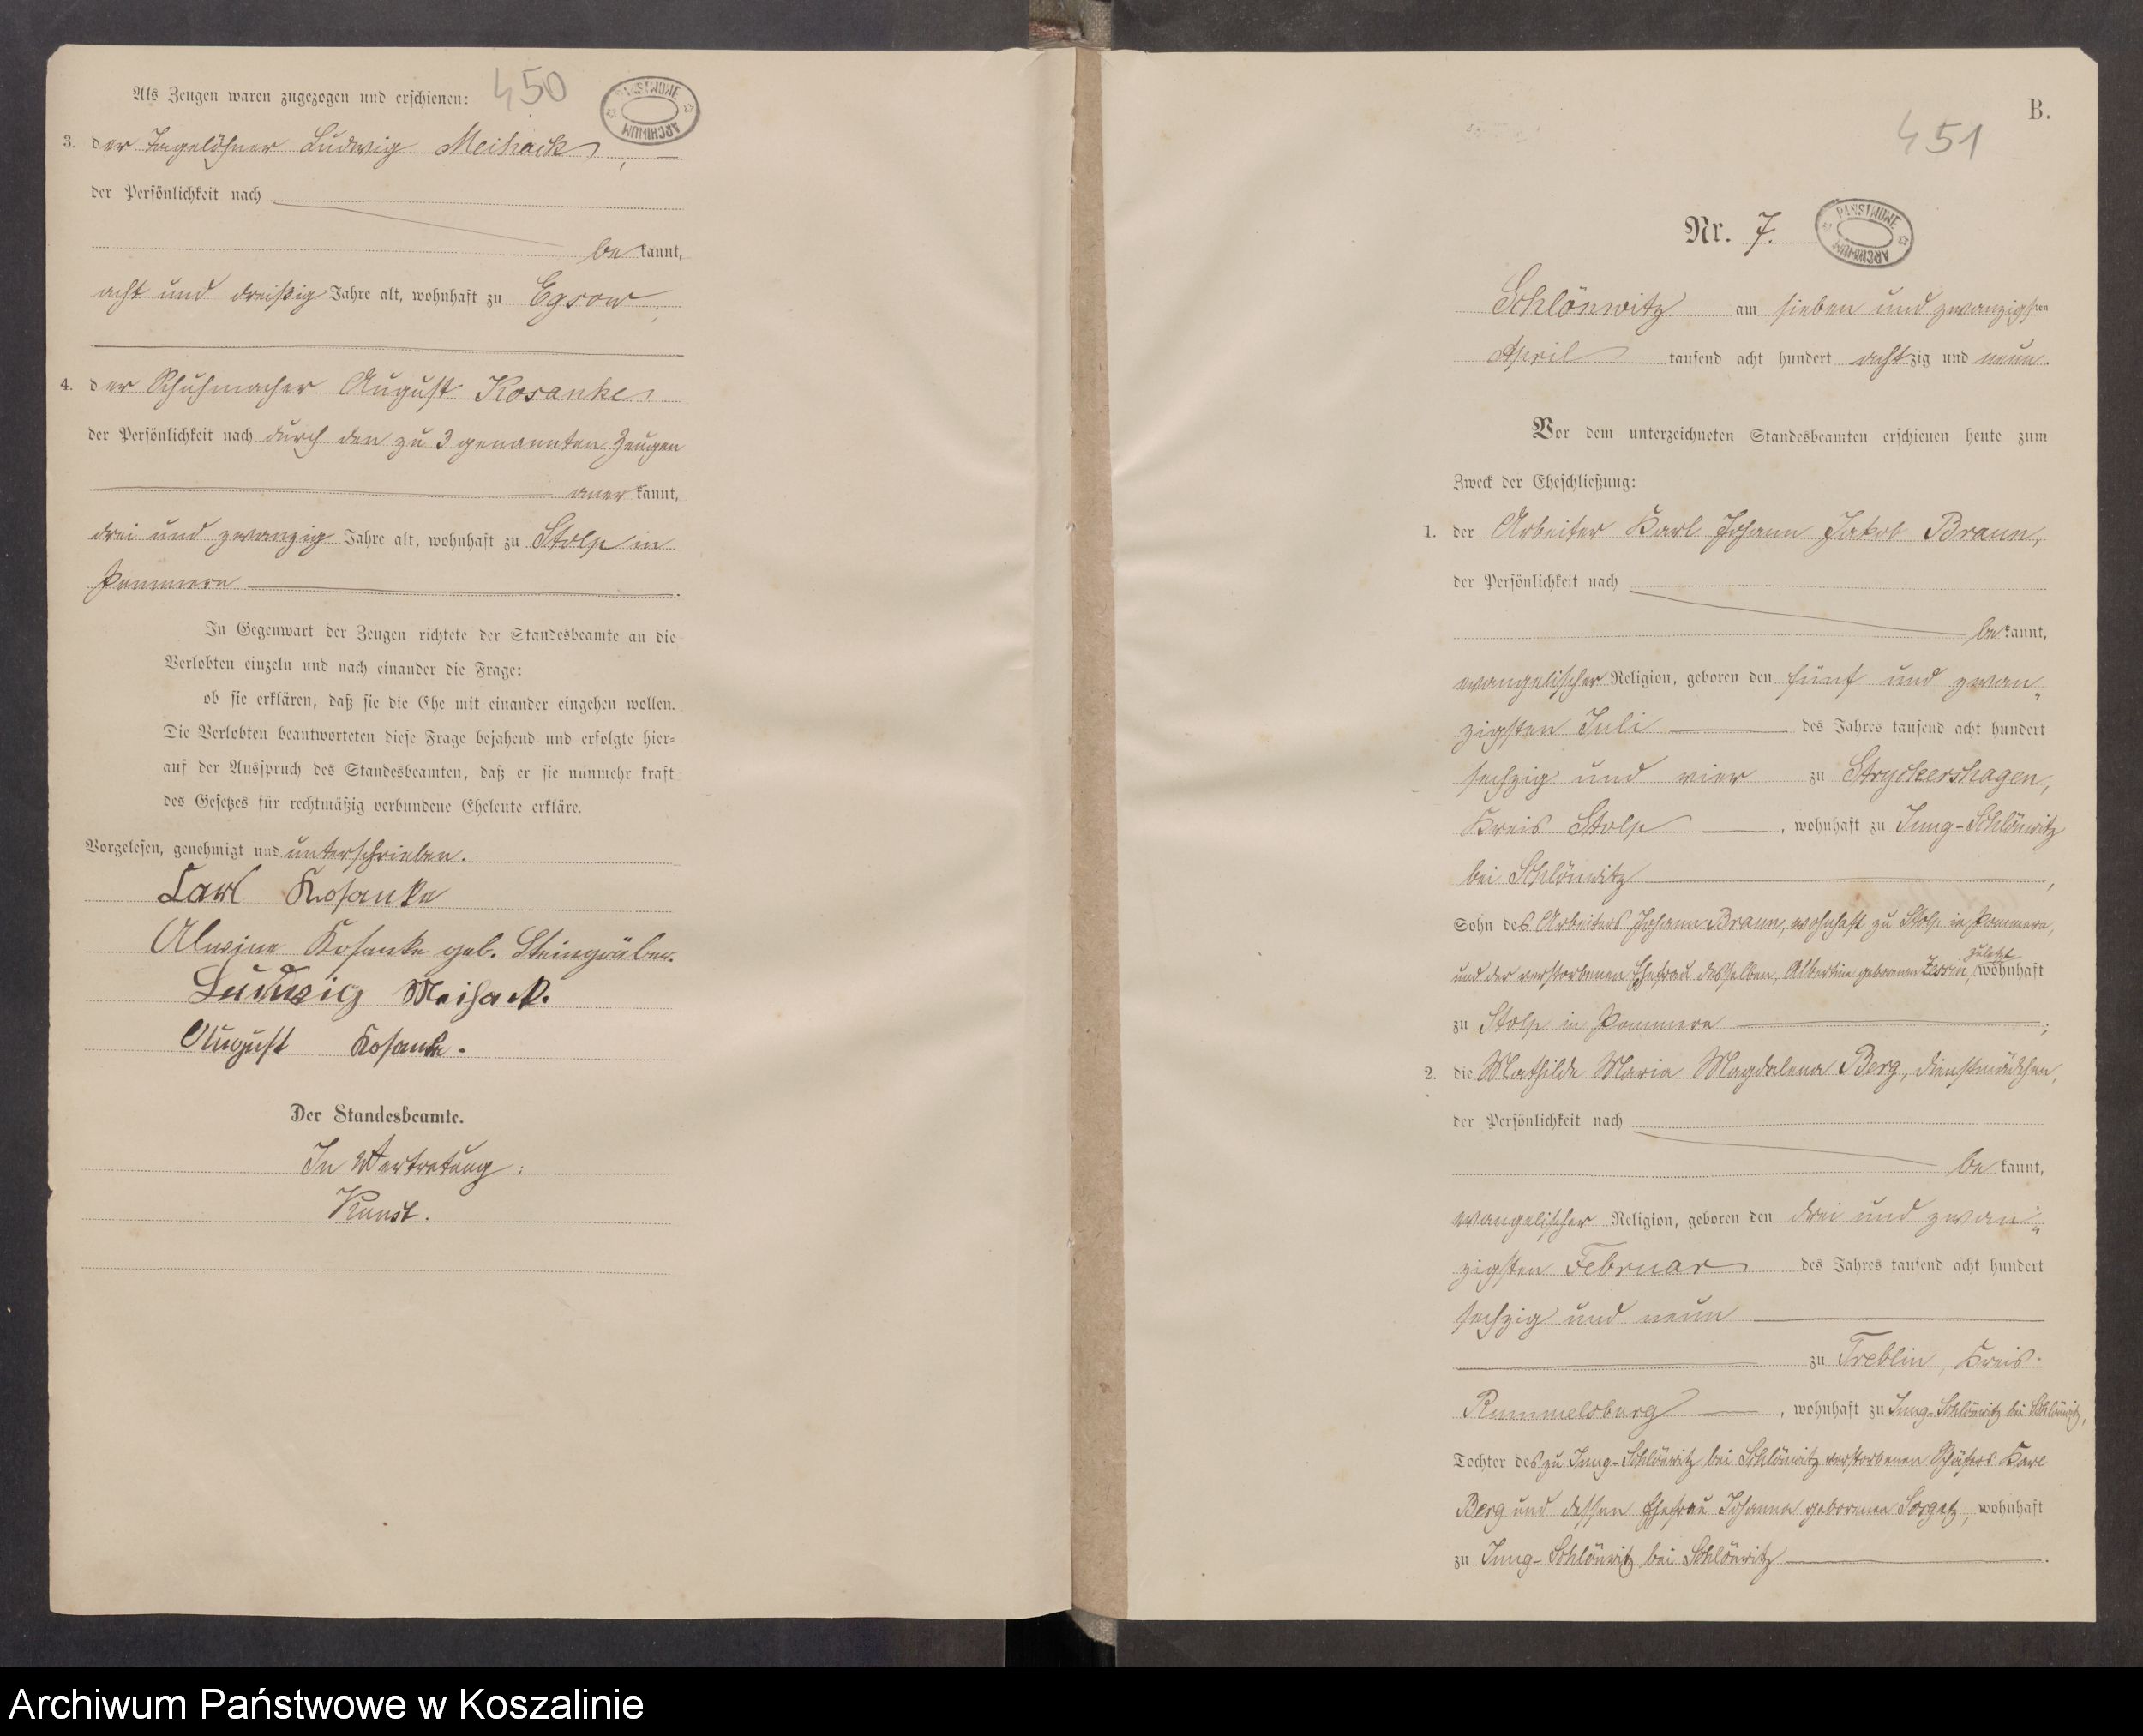 Als Zeugen waren zugezogen und erschienen:
450
PAŃSTWOWE ARCHIWUM
3. der Tagelöhner Ludwig Meihack,
der Persönlichkeit nach
bekannt,
acht und dreißig Jahre alt, wohnhaft zu Egsow;
4. der Schuhmacher August Kosanke
der Persönlichkeit nach durch den zu 3 genannten Zeugen
anerkannt,
drei und zwanzig Jahre alt, wohnhaft zu Stolp in
Pommern.
In Gegenwart der Zeugen richtete der Standesbeamte an die
Verlobten einzeln und nach einander die Frage:
ob sie erklären, daß sie die Ehe mit einander eingehen wollen.
Die Verlobten beantworteten diese Frage bejahend und erfolgte hier-
auf der Ausspruch des Standesbeamten, daß er sie nunmehr kraft
des Gesetzes für rechtmäßig verbundene Eheleute erkläre.
Vorgelesen, genehmigt und unterschrieben.
Carl Kosanke
Alwine Kosanke geb. Steingräber.
Ludwig Meihack.
August Kosanke.
Der Standesbeamte.
In Vertretung:
Kunst.
B.
451
Nr. 7.
PAŃSTWOWE ARCHIWUM
Schlönwitz am sieben und zwanzigsten
April tausend acht hundert achtzig und neun.
Vor dem unterzeichneten Standesbeamten erschienen heute zum
Zweck der Eheschließung:
1. der Arbeiter Karl Johann Jakob Braun,
der Persönlichkeit nach
bekannt,
evangelischer Religion, geboren den fünf und zwan-
zigsten Juli des Jahres tausend acht hundert
sechzig und vier zu Stryckershagen,
Kreis Stolp, wohnhaft zu Jung-Schlönwitz
bei Schlönwitz,
Sohn des Arbeiters Johann Braun, wohnhaft zu Stolp in Pommern,
und der verstorbenen Ehefrau desselben, Albertine geborenen Zessin, zuletzt wohnhaft
zu Stolp in Pommern;
2. die Mathilde Maria Magdalena Berg, Dienstmädchen,
der Persönlichkeit nach
bekannt,
evangelischer Religion, geboren den drei und zwan-
zigsten Februar des Jahres tausend acht hundert
sechzig und neun
zu Treblin, Kreis
Rummelsburg, wohnhaft zu Jung-Schlönwitz bei Schlönwitz,
Tochter des zu Jung-Schlönwitz bei Schlönwitz verstorbenen Schäfers Karl
Berg und dessen Ehefrau Johanna geborenen Sorgatz, wohnhaft
zu Jung-Schlönwitz bei Schlönwitz.
Archiwum Państwowe w Koszalinie